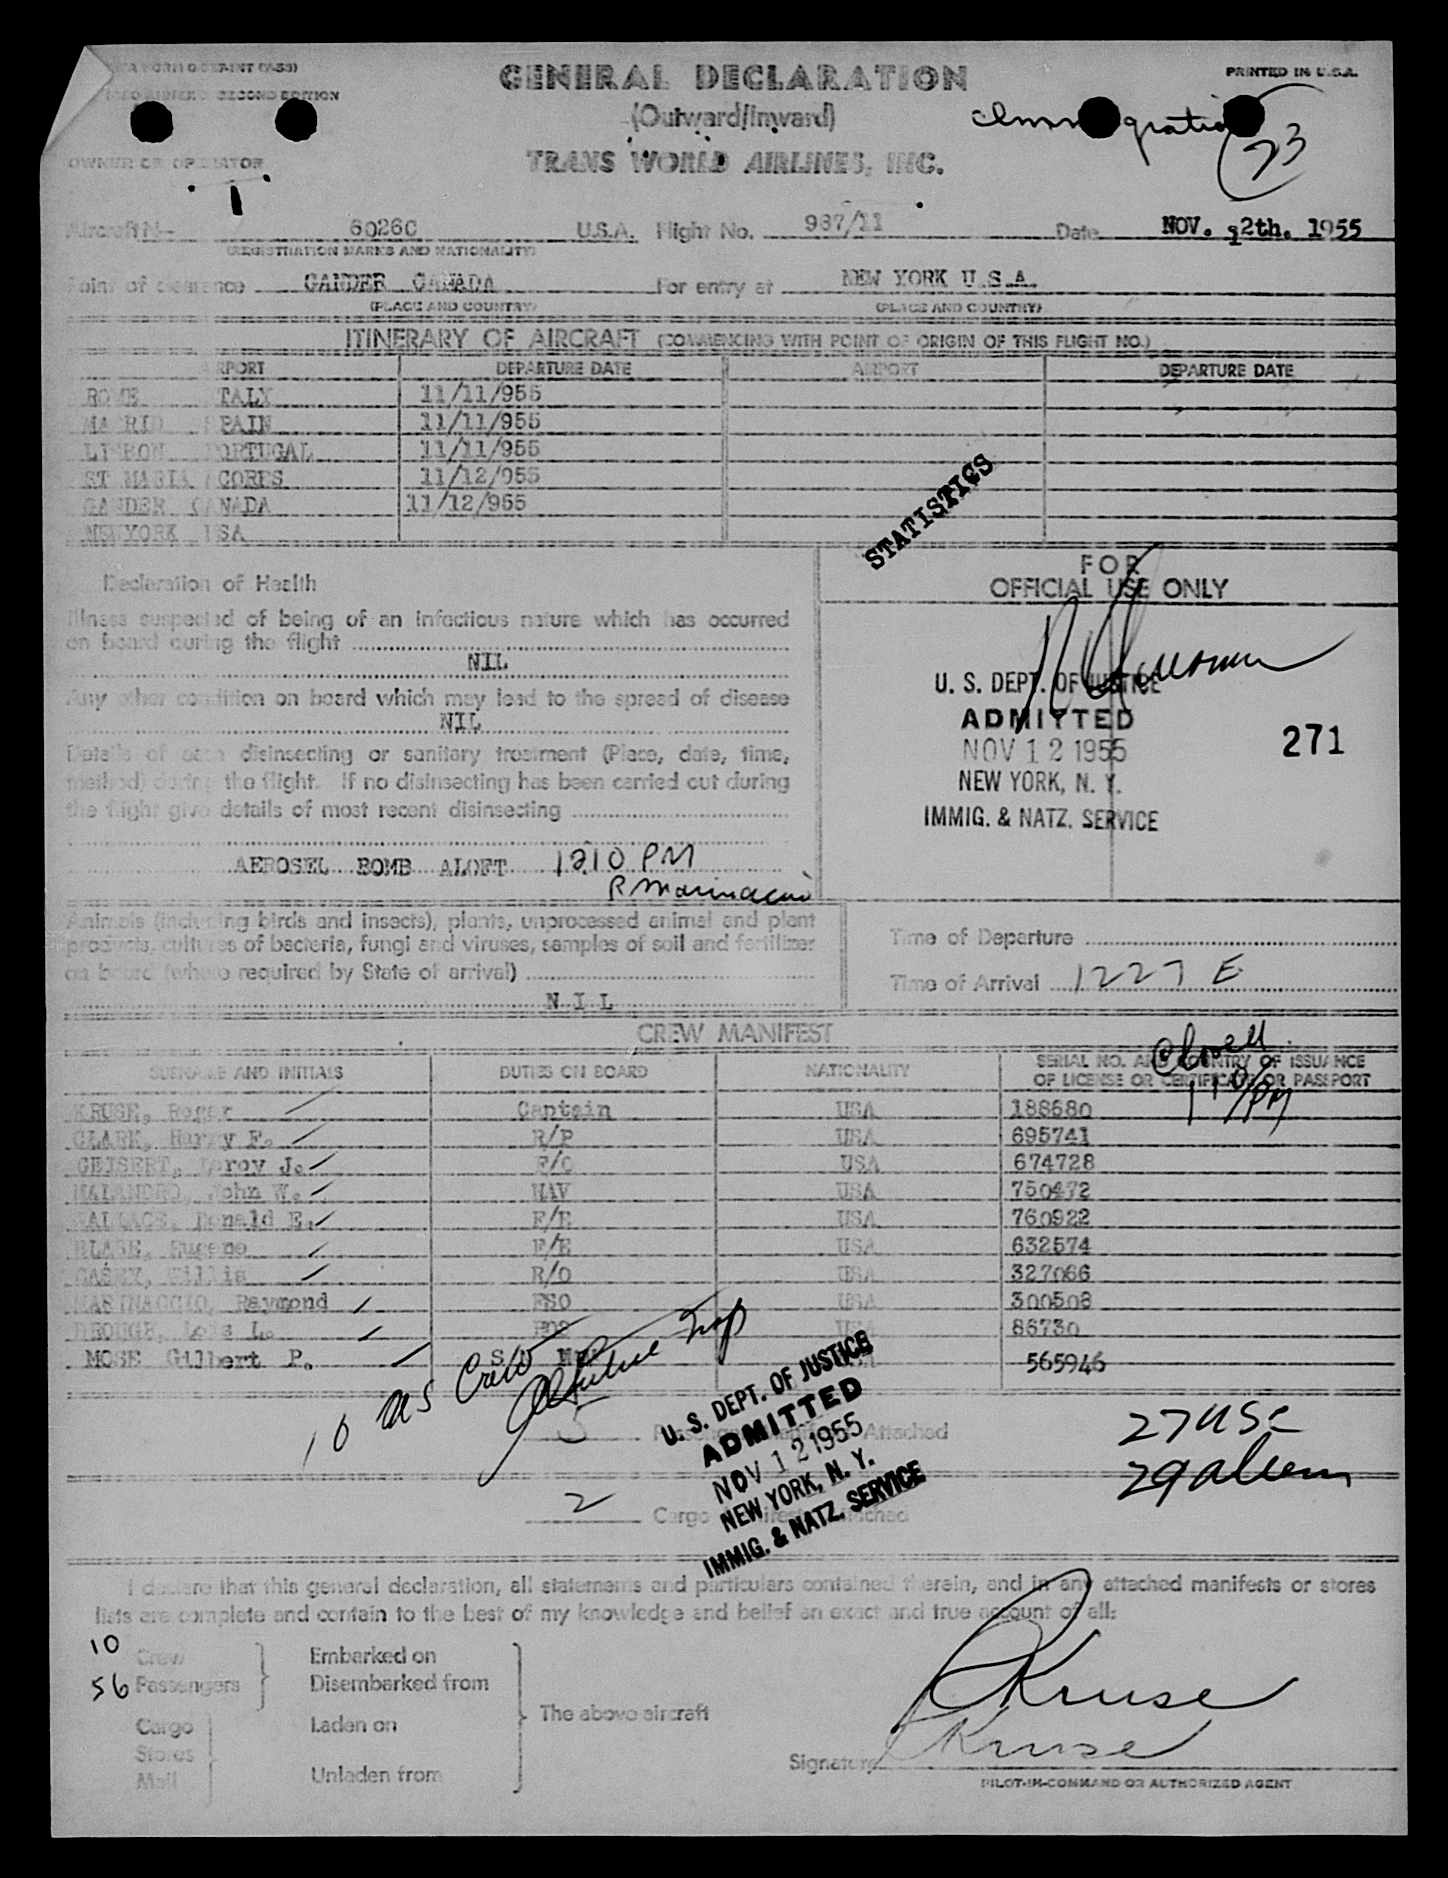 SECOND EDITION
PRINTED IN U.S.A.
GENERAL DECLARATION
(Outward/Inward)
Immigration
73
OWNER OR OPERATOR
TRANS WORLD AIRLINES, INC.
Aircraft N- 6026C U.S.A. Flight No. 967/11 Date NOV. 12th. 1955
(REGISTRATION MARKS AND NATIONALITY)
Point of clearance GANDER CANADA For entry at NEW YORK U.S.A.
(PLACE AND COUNTRY) (PLACE AND COUNTRY)
ITINERARY OF AIRCRAFT (COMMENCING WITH POINT OF ORIGIN OF THIS FLIGHT NO.)
AIRPORT DEPARTURE DATE AIRPORT DEPARTURE DATE
ROME ITALY 11/11/955
MADRID SPAIN 11/11/955
LISBON PORTUGAL 11/11/955
ST MARIA ACORES 11/12/955
GANDER CANADA 11/12/955
NEWYORK USA
STATISTICS
Declaration of Health
Illness suspected of being of an infectious nature which has occurred
on board during the flight
NIL
Any other condition on board which may lead to the spread of disease
NIL
Details of each disinsecting or sanitary treatment (Place, date, time,
method) during the flight. If no disinsecting has been carried out during
the flight give details of most recent disinsecting
AEROSEL BOMB ALOFT 1210 PM
R Marinaccio
FOR
OFFICIAL USE ONLY
U. S. DEPT. OF JUSTICE
ADMITTED
NOV 12 1955
NEW YORK, N. Y.
IMMIG. & NATZ. SERVICE
271
Animals (including birds and insects), plants, unprocessed animal and plant
products, cultures of bacteria, fungi and viruses, samples of soil and fertilizer
on board (where required by State of arrival)
N I L
Time of Departure
Time of Arrival 1227 E
CREW MANIFEST
SURNAME AND INITIALS DUTIES ON BOARD NATIONALITY SERIAL NO. AND COUNTRY OF ISSUANCE
OF LICENSE OR CERTIFICATE OR PASSPORT
110 PM
KRUSE, Roger Captain USA 188680
CLARK, Harry F. R/P USA 695741
GEISERT, Leroy J. F/O USA 674728
MALANDRO, John W. NAV USA 750472
WALLACE, Donald E. F/E USA 760922
BLASE, Eugene F/E USA 632574
CASEY, Willis R/O USA 327066
MARINACCIO, Raymond FSO USA 300508
Lois L. HOS USA 86730
MOSE Gilbert P. USA 565946
10 as Crew
5 Passenger Manifests Attached
2 Cargo Manifests Attached
U. S. DEPT. OF JUSTICE
ADMITTED
NOV 12 1955
NEW YORK, N. Y.
IMMIG. & NATZ. SERVICE
27 USC
29 aliens
I declare that this general declaration, all statements and particulars contained therein, and in any attached manifests or stores
lists are complete and contain to the best of my knowledge and belief an exact and true account of all:
10 Crew Embarked on
56 Passengers Disembarked from
The above aircraft
Cargo Laden on
Stores
Mail Unladen from
R Kruse
Signature R Kruse
PILOT-IN-COMMAND OR AUTHORIZED AGENT